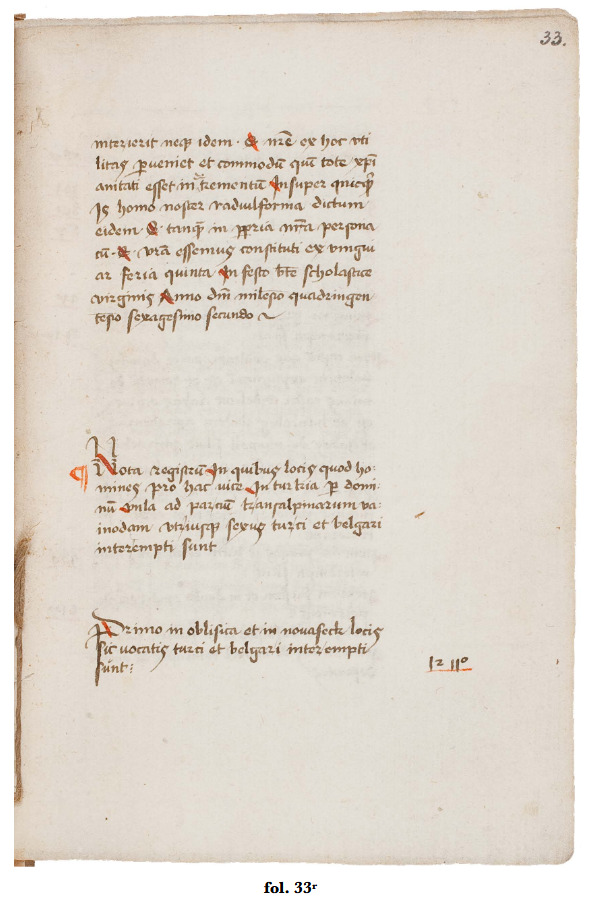 33.
interierit neqꝫ idem · Et nr̄e ex hoc vti
litas ꝑueniet et commodū qū tote xp̄i
anitati esset in trementū Insuper quicqͥd
Is homo noster radulforma dictum
eidem Et tanqͣꝫ in ꝓpria nr̄a persona
cū · Et vrā essemus constituti ex vingui
ar feria quinta In festo bt̄e scholastice
virginis Anno dn̄i milesio quadringen
tesio sexagesimo secundo
N
¶ Nota registrū In quibus locis quod ho-
mines pro hac vice In turkia ꝑ domi-
nū vnla ad parciū transalpinarum va-
inodam vtriusqꝫ sexus turci et belgari
interempti sunt
Primo in oblisica et in novaseck locis
sic vocatis turci et belgari interempti
sunt:
12 110
fol. 33ʳ